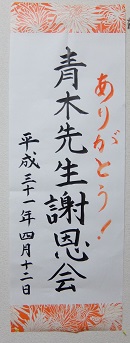 ありがとう！
青木先生謝恩会
平成三十一年四月十二日